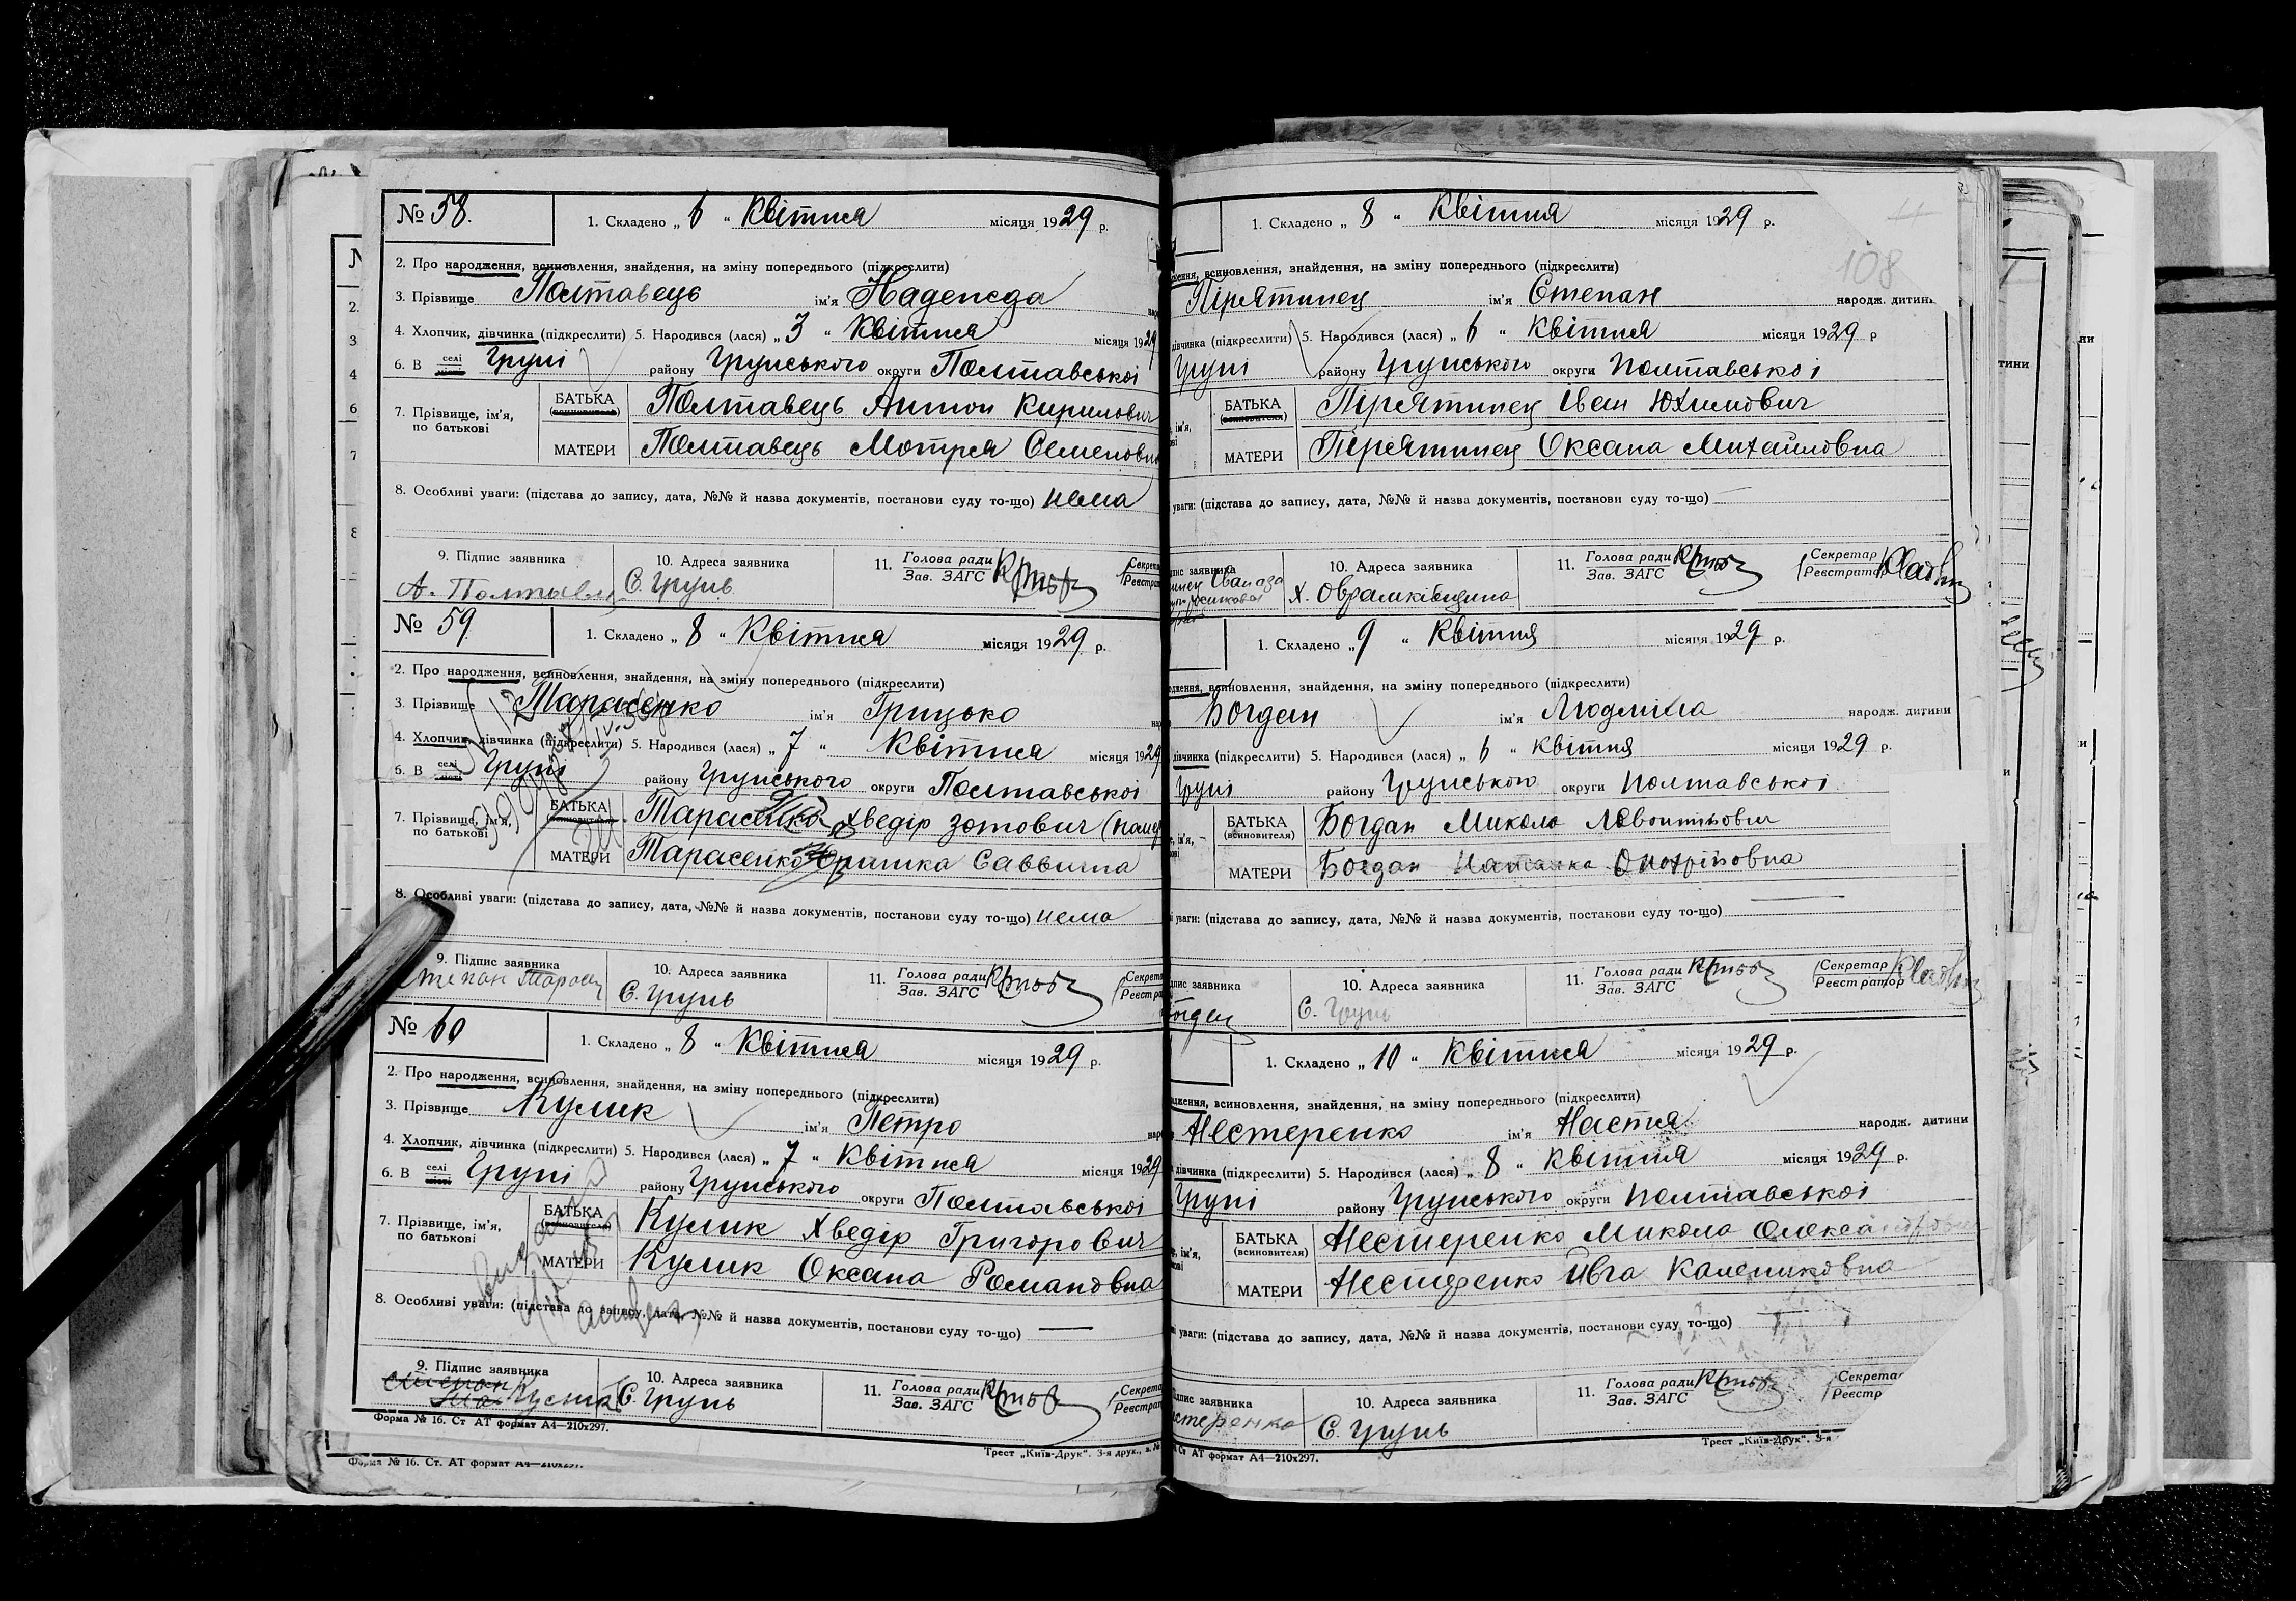 № 58. 1. Складено „ 6 “ Квітня місяця 1929 р.
2. Про народження, всиновлення, знайдення, на зміну попереднього (підкреслити)
3. Прізвище Полтавець ім'я Надежда
4. Хлопчик, дівчинка (підкреслити) 5. Народився (лася) „ 3 “ Квітня місяця 1929
6. В селі Груні району Грунського округи Полтавської
7. Прізвище, ім'я, по батькові
БАТЬКА Полтавець Антон Кирилович
МАТЕРИ Полтавець Мотря Семеновна
8. Особливі уваги: (підстава до запису, дата, №№ й назва документів, постанови суду то-що) нема
9. Підпис заявника 10. Адреса заявника 11. Голова ради
Зав. ЗАГС
А. Полтавец С. Грунь
№ 59 1. Складено „ 8 “ Квітня місяця 1929 р.
2. Про народження, всиновлення, знайдення, на зміну попереднього (підкреслити)
3. Прізвище Тарасенко ім'я Грицько
4. Хлопчик, дівчинка (підкреслити) 5. Народився (лася) „ 7 “ Квітня місяця 1929
6. В селі Груні району Грунського округи Полтавської
7. Прізвище, ім'я, по батькові
БАТЬКА Тарасенко Хведір Зотович
МАТЕРИ Тарасенко Оришка Саввишна
8. Особливі уваги: (підстава до запису, дата, №№ й назва документів, постанови суду то-що) нема
9. Підпис заявника 10. Адреса заявника 11. Голова ради
Зав. ЗАГС
С. Грунь
№ 60 1. Складено „ 8 “ Квітня місяця 1929 р.
2. Про народження, всиновлення, знайдення, на зміну попереднього (підкреслити)
3. Прізвище Кулик ім'я Петро
4. Хлопчик, дівчинка (підкреслити) 5. Народився (лася) „ 7 “ Квітня місяця 1929
6. В селі Груні району Грунського округи Полтавської
7. Прізвище, ім'я, по батькові
БАТЬКА Кулик Хведір Григорович
МАТЕРИ Кулик Оксана Романовна
8. Особливі уваги: (підстава до запису, дата, №№ й назва документів, постанови суду то-що) —
9. Підпис заявника 10. Адреса заявника 11. Голова ради
Зав. ЗАГС
С. Грунь
Форма № 16. Ст АТ формат А4—210х297.
Трест „Київ-Друк“. 3-я друк., з. №
Форма № 16. Ст. АТ формат А4—210х297.
108
1. Складено „ 8 “ Квітня місяця 1929 р.
всиновлення, знайдення, на зміну попереднього (підкреслити)
Пірятинец ім'я Степан народж. дитини
дівчинка (підкреслити) 5. Народився (лася) „ 6 “ Квітня місяця 1929 р
Груні району Грунського округи Полтавської
БАТЬКА (всиновителя) Пірятинец Іван Юхимович
МАТЕРИ Пірятинец Оксана Михайловна
уваги: (підстава до запису, дата, №№ й назва документів, постанови суду то-що) —
10. Адреса заявника 11. Голова ради Секретар
Зав. ЗАГС Реєстратор
Х. Оврамківщина
1. Складено „ 9 “ Квітня місяця 1929 р.
всиновлення, знайдення, на зміну попереднього (підкреслити)
Богдан ім'я Людмила народж. дитини
дівчинка (підкреслити) 5. Народився (лася) „ 6 “ Квітня місяця 1929 р.
Груні району Грунського округи Полтавської
БАТЬКА (всиновителя) Богдан Микола Левонтьович
МАТЕРИ Богдан Наталка Онопріївовна
уваги: (підстава до запису, дата, №№ й назва документів, постанови суду то-що) —
заявника 10. Адреса заявника 11. Голова ради Секретар
Зав. ЗАГС Реєстратор
С. Грунь
1. Складено „ 10 “ Квітня місяця 1929 р.
всиновлення, знайдення, на зміну попереднього (підкреслити)
Нестеренко ім'я Настя народж. дитини
дівчинка (підкреслити) 5. Народився (лася) „ 8 “ Квітня місяця 1929 р.
Груні району Грунського округи Полтавської
БАТЬКА (всиновителя) Нестеренко Микола Олександрович
МАТЕРИ Нестеренко Ивга Калениковна
уваги: (підстава до запису, дата, №№ й назва документів, постанови суду то-що)
заявника 10. Адреса заявника 11. Голова ради
Зав. ЗАГС
С. Грунь
Ст АТ формат А4—210х297.
Трест „Київ-Друк“. 3-я